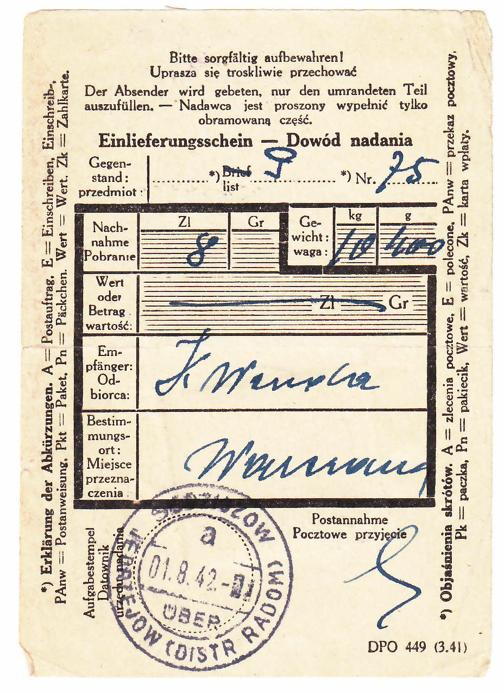 Bitte sorgfältig aufbewahren!
Uprasza się troskliwie przechować
Der Absender wird gebeten, nur den umrandeten Teil
auszufüllen. — Nadawca jest proszony wypełnić tylko
obramowaną część.
Einlieferungsschein — Dowód nadania
Gegen-
stand:
przedmiot:
*) Brief
list
*) Nr. 75
Nach-
nahme
Pobranie
Zl Gr
8
Ge-
wicht:
waga:
kg g
10 400
Wert
oder
Betrag
wartość:
Zl Gr
Em-
pfänger:
Od-
biorca:
Bestim-
mungs-
ort:
Miejsce
przezna-
czenia
Aufgabestempel
Datownik
urzędu nadania
a
01.8.42
ÜBER
JEDRZEJOW (DISTR RADOM)
Postannahme
Pocztowe przyjęcie
DPO 449 (3.41)
*) Erklärung der Abkürzungen. A = Postauftrag, E = Einschreiben, Einschreib-,
PAnw = Postanweisung, Pkt = Paket, Pn = Päckchen. Wert = Wert. Zk = Zahlkarte.
*) Objaśnienia skrótów. A = zlecenia pocztowe, E = polecone, PAnw = przekaz pocztowy,
Pk = paczka, Pn = pakiecik, Wert = wartość, Zk = karta wpłaty.